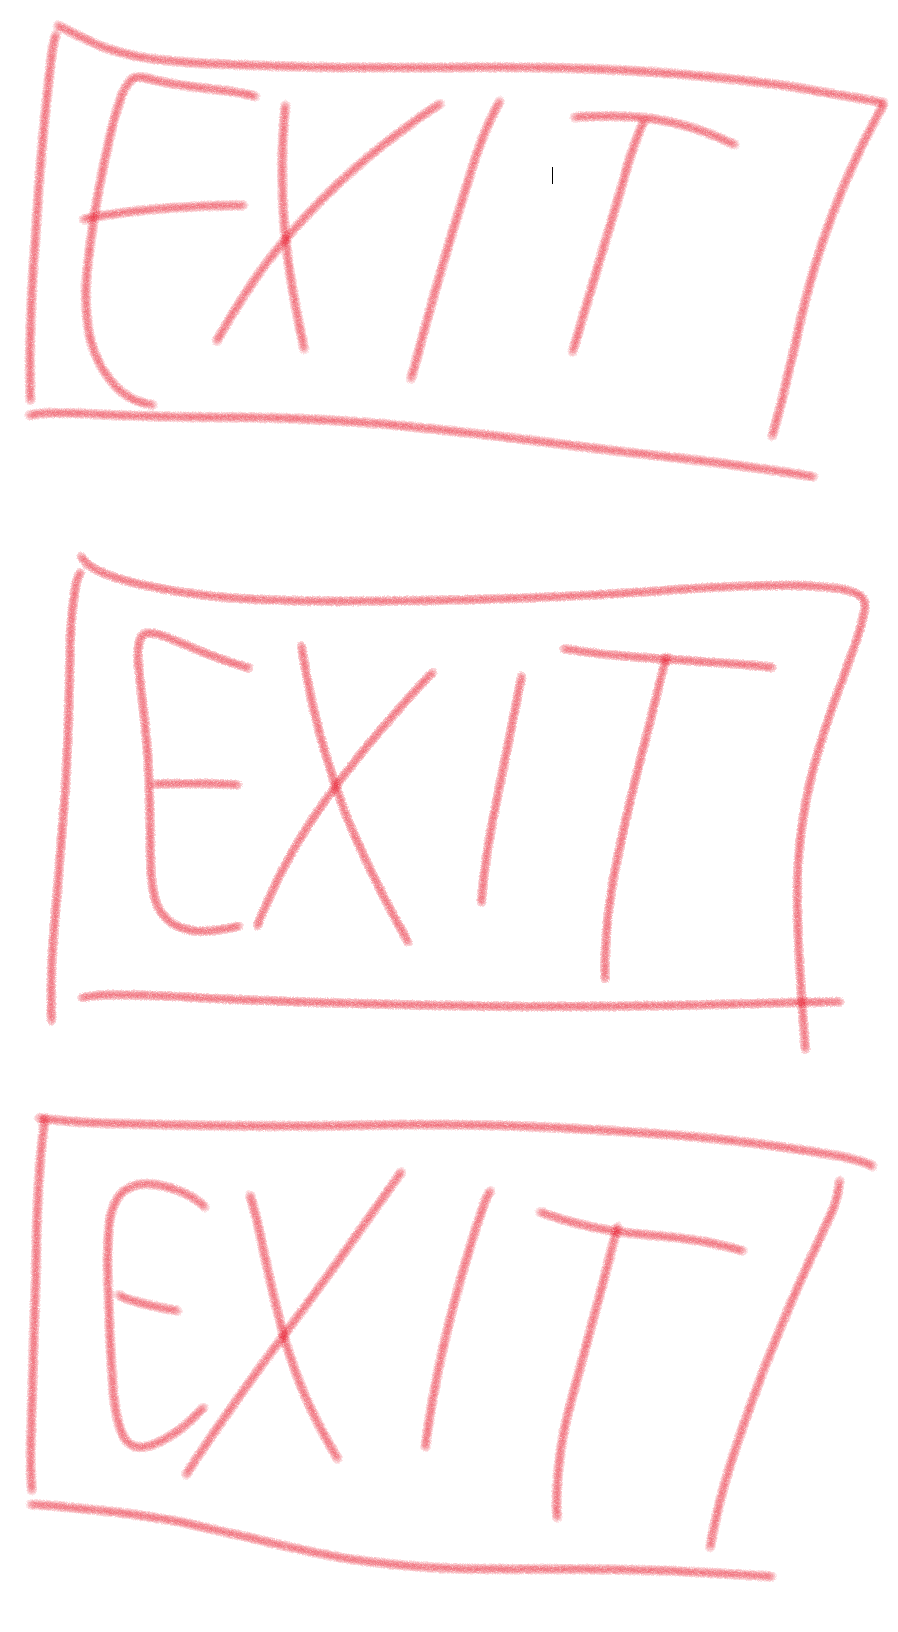 EXIT
EXIT
EXIT